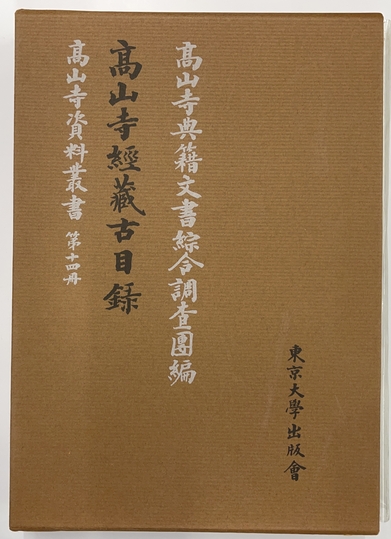 東京大學出版會
高山寺典籍文書綜合調査團編
高山寺經藏古目録
高山寺資料叢書 第十四冊